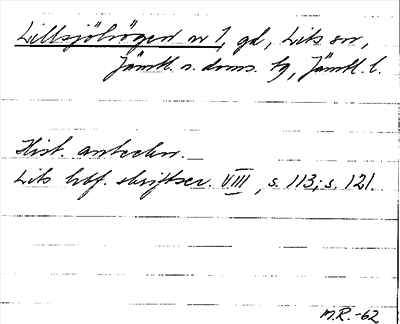 Lillsjöhögen nr 1, gd, Lits sn,
Jämtl. n. doms. tg, Jämtl. l.
Hist. anteckn.
Lits hbf. skriftser. VIII, s. 113; s. 121.
M.R.-62